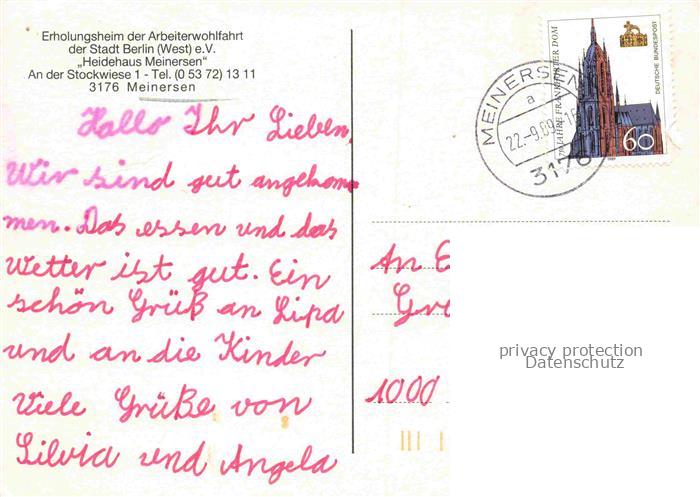 Erholungsheim der Arbeiterwohlfahrt
der Stadt Berlin (West) e.V.
„Heidehaus Meinersen"
An der Stockwiese 1 - Tel. (0 53 72) 13 11
3176 Meinersen
Hallo Ihr Lieben,
Wir sind gut angekom-
men. Das essen und das
Wetter ist gut. Ein
schön Grüß an Lipa
und an die Kinder
Viele Grüße von
Silvia und Angela
MEINERSEN
a
22.-9.89
3176
JAHRE FRANKFURTER DOM
DEUTSCHE BUNDESPOST
60
An
1000
privacy protection
Datenschutz